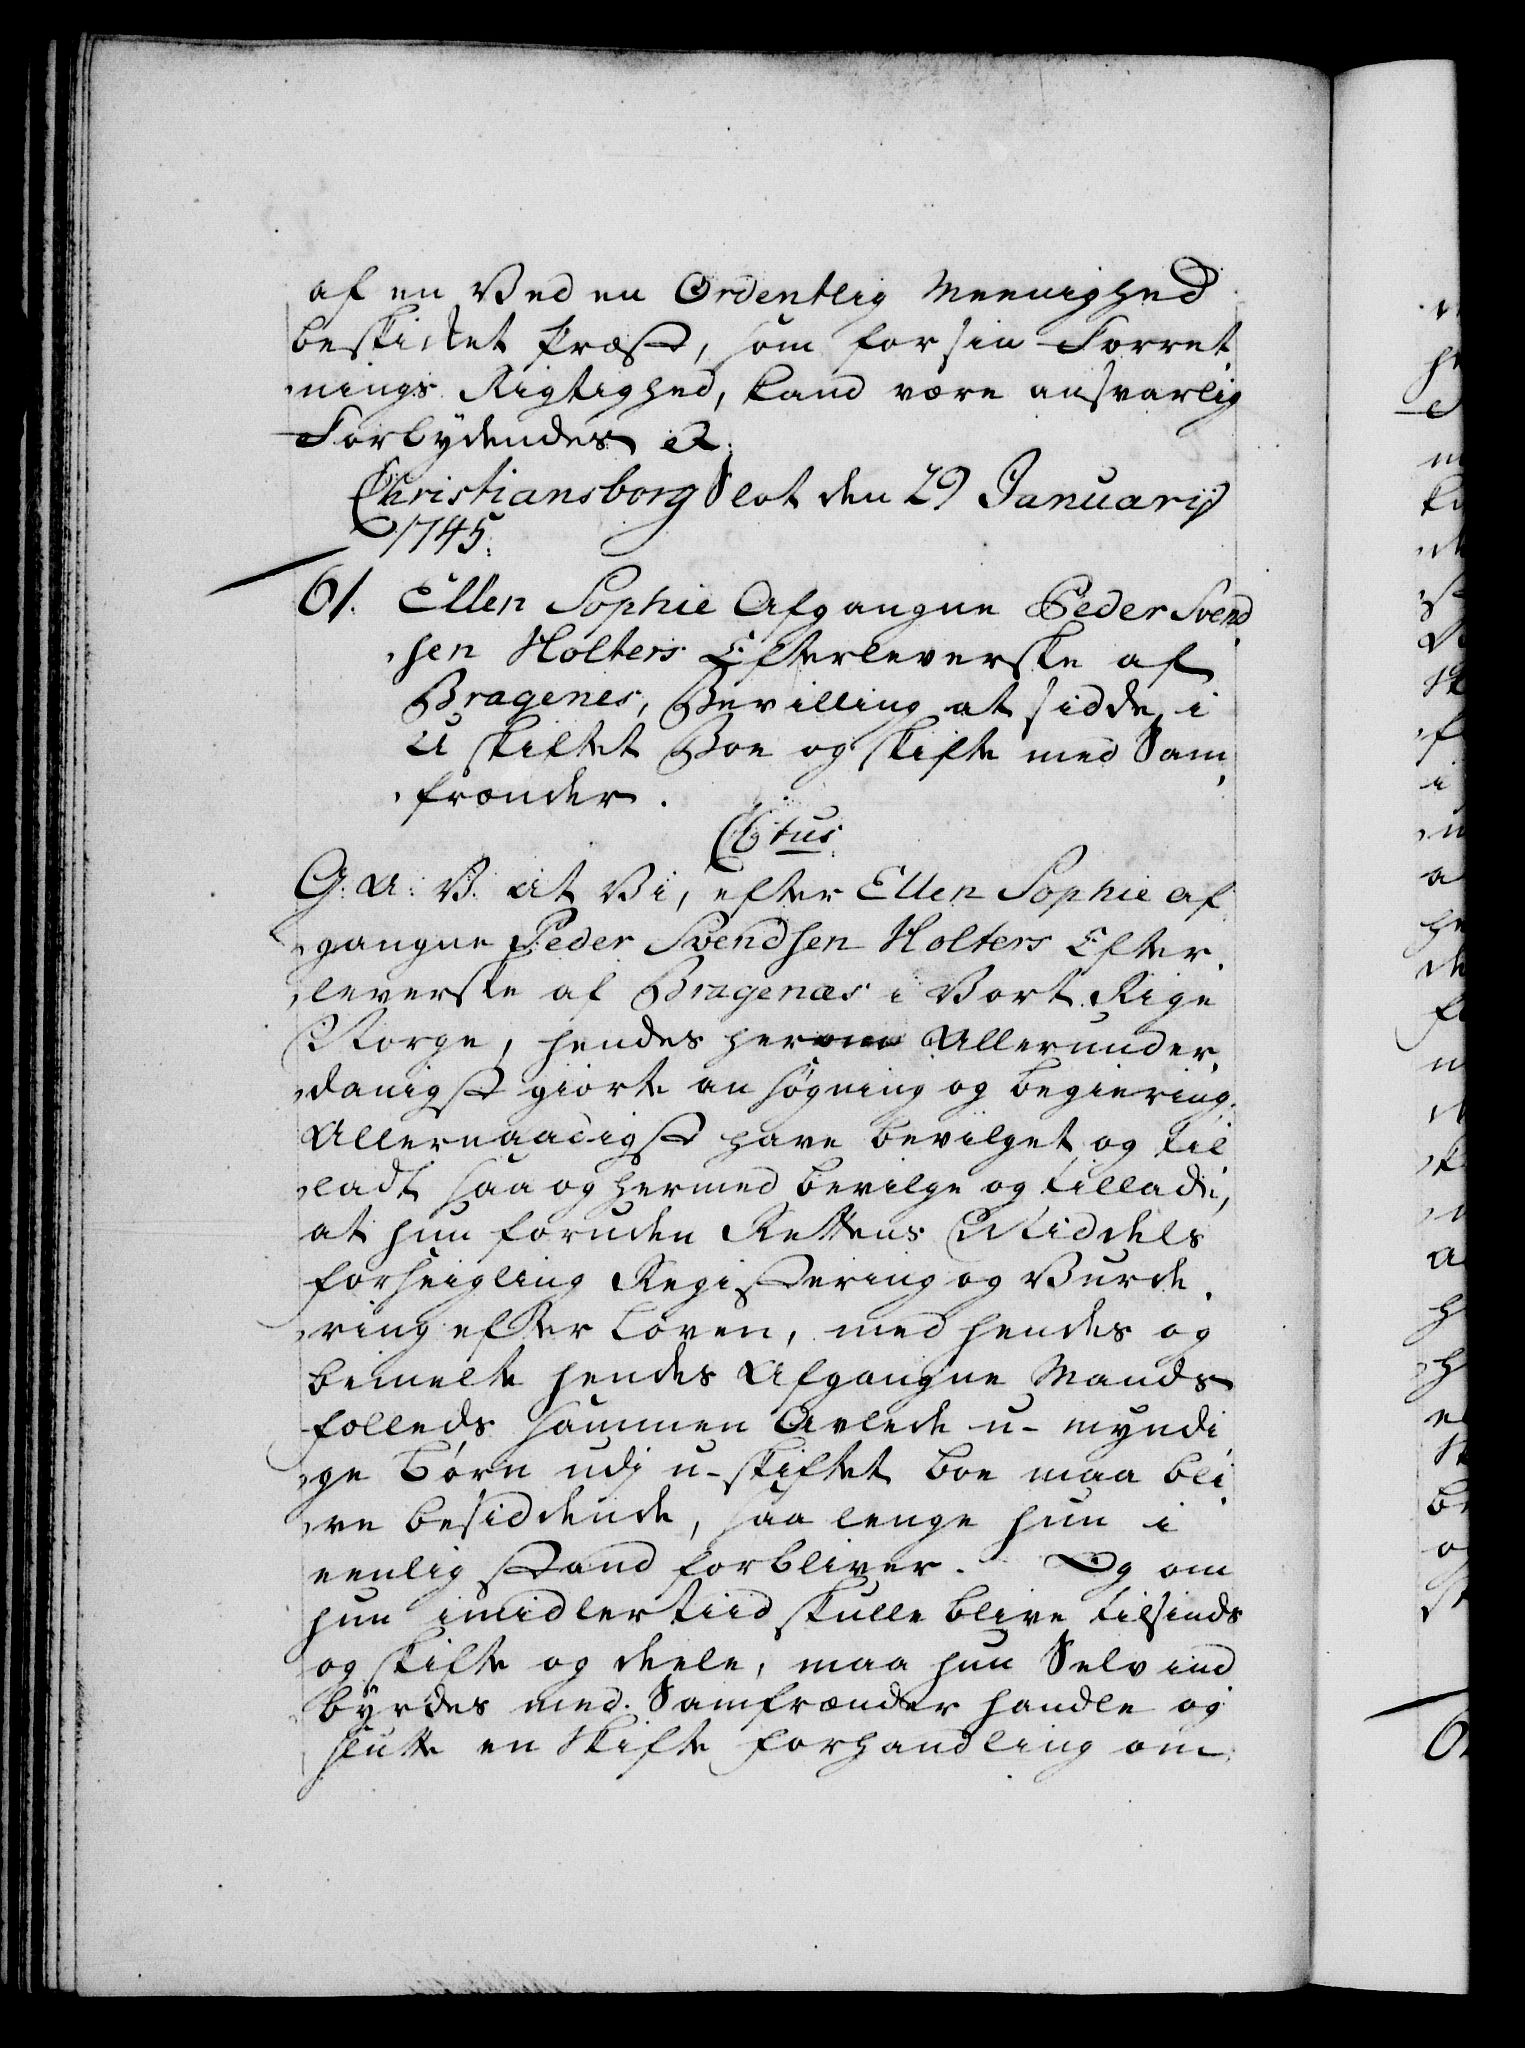 af en Ved en Ordentlig Meenighed
beskicket Præst, som for sin Forret
nings Rigtighed, kand være ansvarlig
Forbydendes &.
Christiansborg Slot den 29 Januarij
1745.
61. Ellen Sophie Afgangne Peder Svend
sen Holters Efterleverske af
Bragenes, Bevilling at sidde i
U skiftet Boe og skifte med Sam
frænder.
C6tus
G: A: V. at Vi, efter Ellen Sophie af
gangne Peder Svendsen Holters Efter
leverske af Bragenæs i Vort Rige
Norge, hendes herom Allerunder
danigst giorte ansøgning og begiering
Allernaadigst have bevilget og til
ladt saa og hermed bevilge og tillade,
at hun foruden Rettens Middels
forseigling Registering og Vurde
ring efter Loven, med hendes og
bemelte hendes Afgangne Mands
folleds sammen Avlede u-myndi
ge Børn udj u-skiftet boe maa bli
ve besiddende, saa lenge hun i
eenlig stand forbliver. Og om
hun imidlertiid skulle blive tilsinds
og skifte og deele, maa hun Selv ind
byrdes med Samfrænder handle og
slutte en Skifte forhandling om